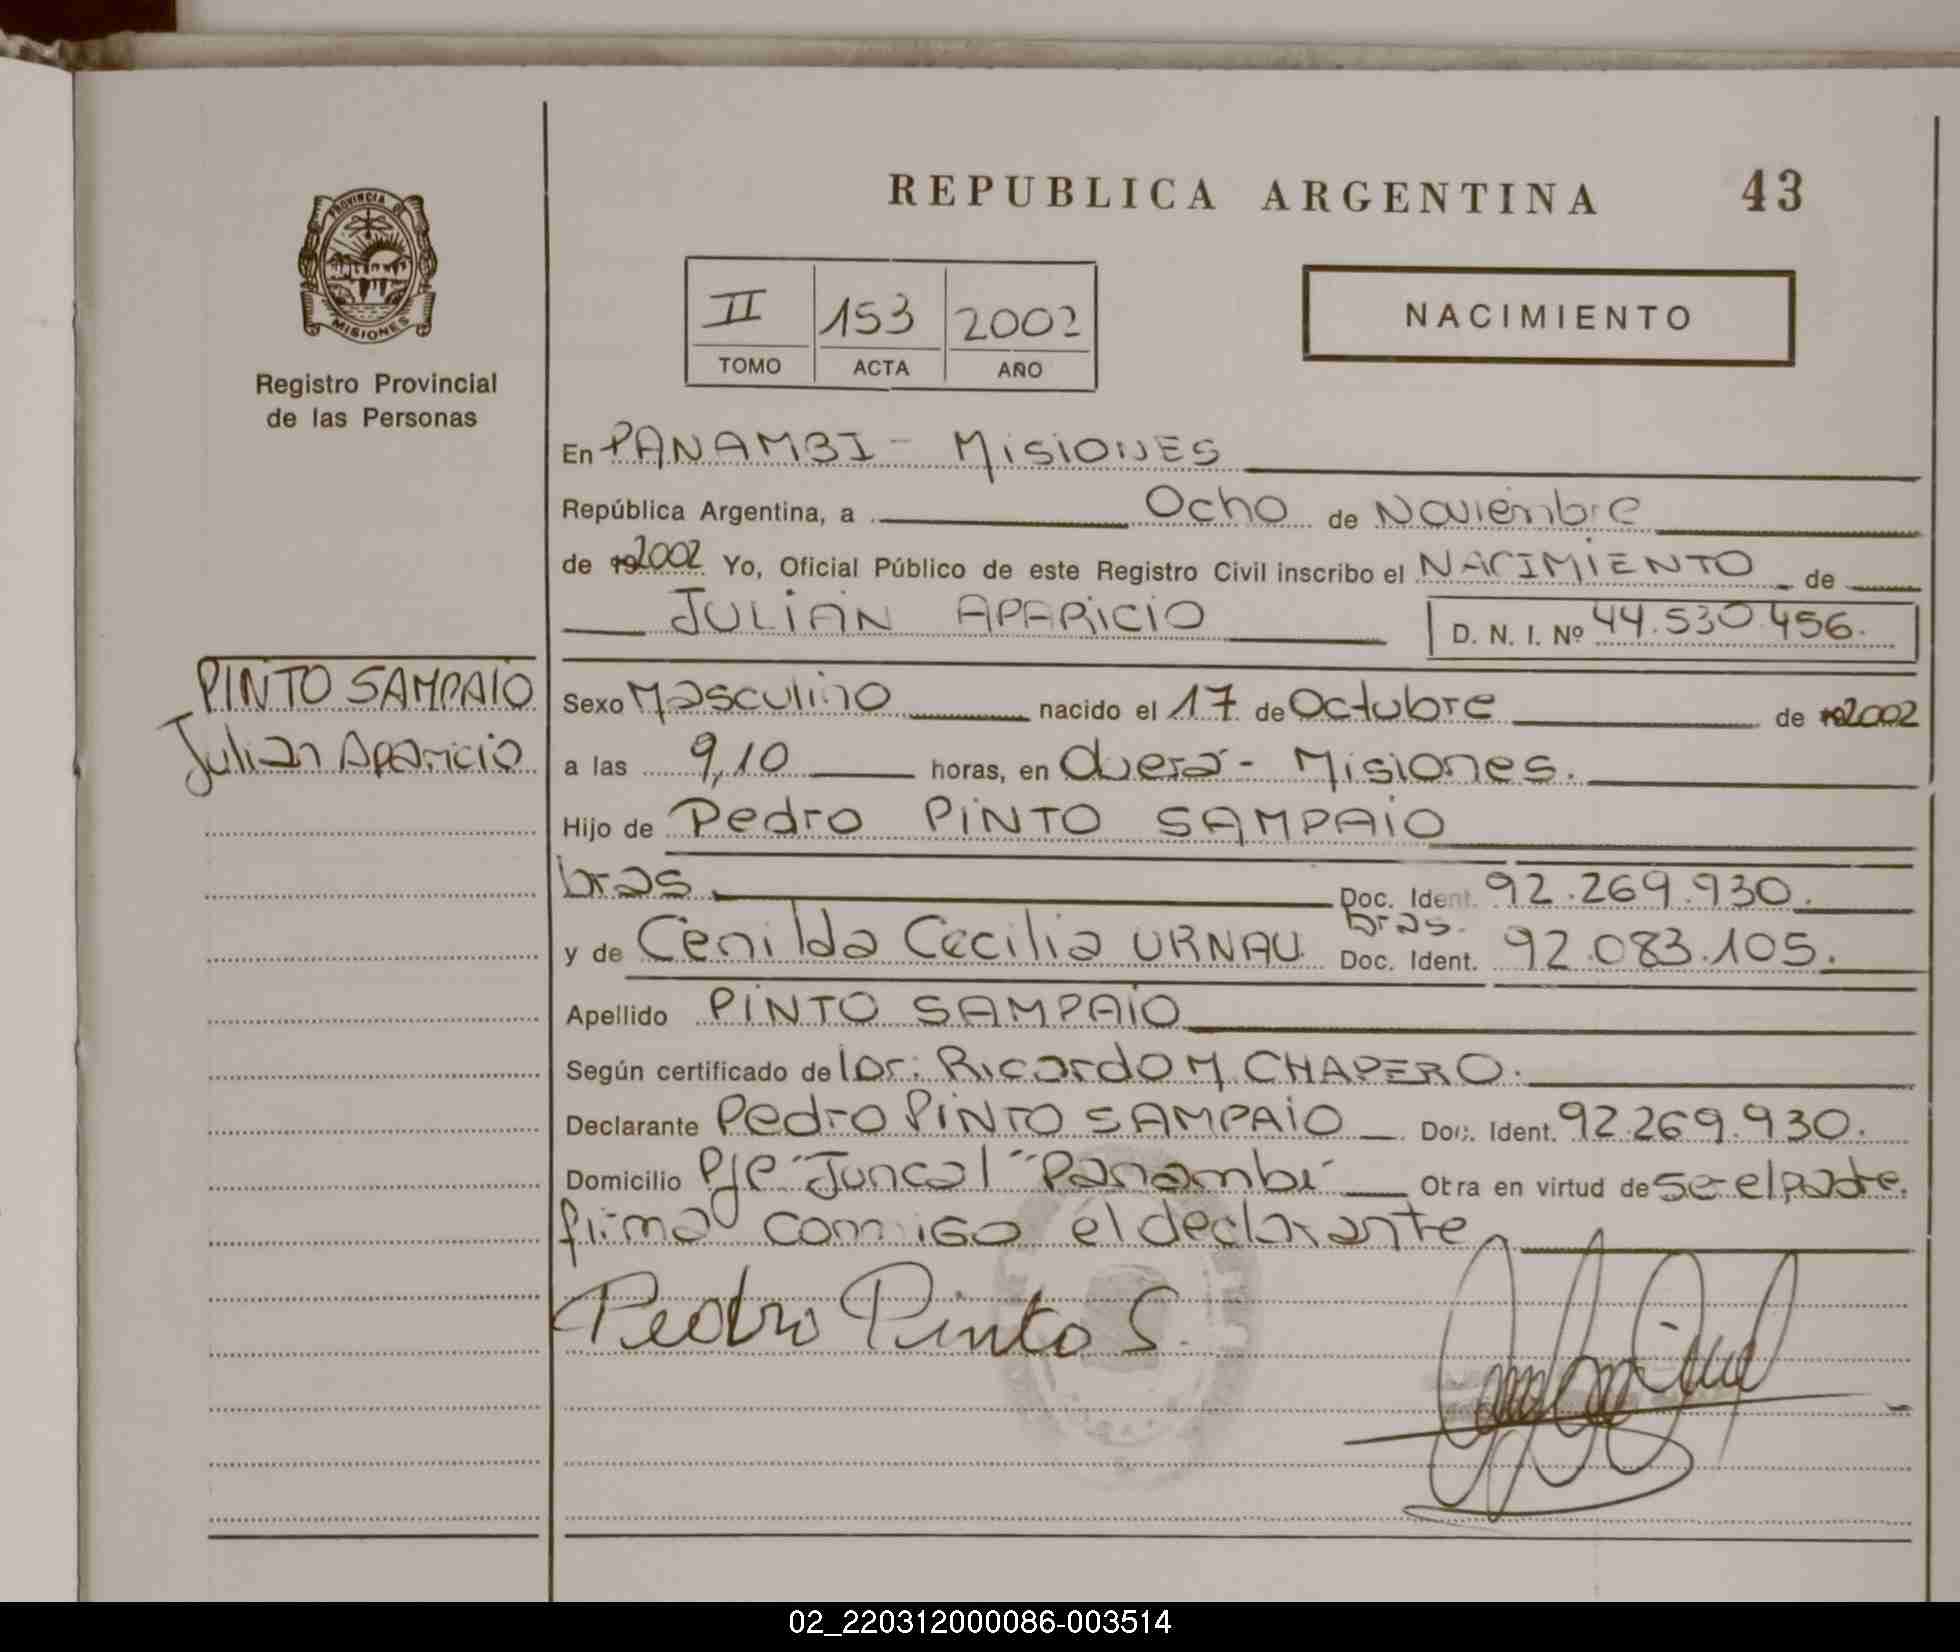 PROVINCIA DE
MISIONES
Registro Provincial
de las Personas
REPUBLICA ARGENTINA 43
II 153 2002
TOMO ACTA AÑO
NACIMIENTO
En PANAMBI - MisiONES
República Argentina, a Ocho de Noviembre
de 192002 Yo, Oficial Público de este Registro Civil inscribo el NACIMIENTO de
JULIAN APARICIO D. N. I. Nº 44.530.456.
PINTO SAMPAIO
Julian Aparicio
Sexo Masculino nacido el 17 de Octubre de 192002
a las 9,10 horas, en Overa - Misiones.
Hijo de Pedro PINTO SAMPAIO
bras. Doc. Ident. 92.269.930.
bras.
y de Cenilda Cecilia URNAU Doc. Ident. 92.083.105.
Apellido PINTO SAMPAIO
Según certificado de Dr: Ricardo M. CHAPERO.
Declarante Pedro PINTO SAMPAIO Doc. Ident. 92.269.930.
Domicilio Pje "Juncal" Panambi Otra en virtud de se el padre.
firma conmigo el declarante
Pedro Pinto S.
02_220312000086-003514